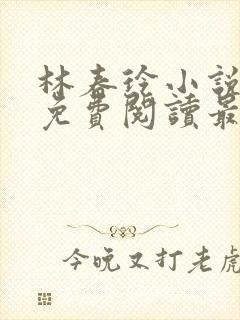 林春玲小說
免費閱讀最
今晚又打老虎